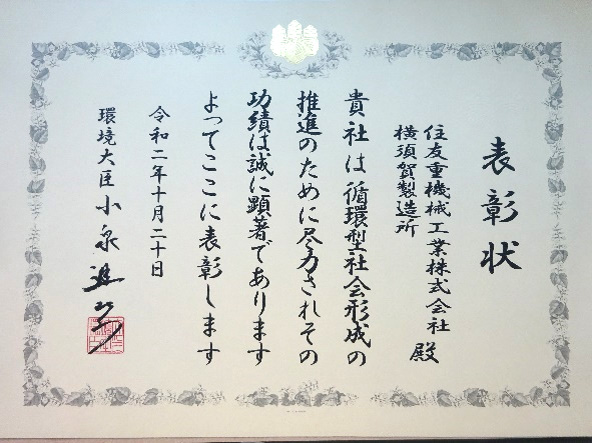 表彰状
住友重機械工業株式会社
横須賀製造所
殿
貴社は循環型社会形成の
推進のために尽力されその
功績は誠に顕著であります
よってここに表彰します
令和二年十月二十日
環境大臣 小泉進次郎